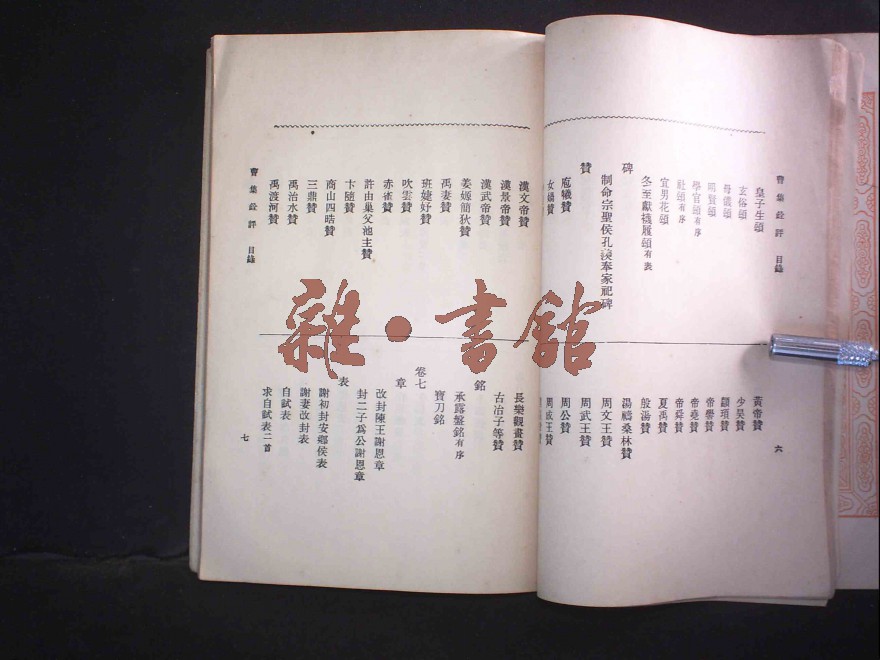 曹集銓評 目錄
六
皇子生頌
玄俗頌
母儀頌
明賢頌
學官頌有序
社頌有序
宜男花頌
冬至獻襪履頌有表
碑
制命宗聖侯孔羨奉家祀碑
贊
庖犧贊
女媧贊
黃帝贊
少昊贊
顓頊贊
帝嚳贊
帝堯贊
帝舜贊
夏禹贊
殷湯贊
湯禱桑林贊
周文王贊
周武王贊
周公贊
周成王贊
漢文帝贊
漢景帝贊
漢武帝贊
姜嫄簡狄贊
禹妻贊
班婕妤贊
吹雲贊
赤雀贊
許由巢父池主贊
卞隨贊
商山四皓贊
三鼎贊
禹治水贊
禹渡河贊
長樂觀畫贊
古冶子等贊
銘
承露盤銘有序
寶刀銘
卷七
章
改封陳王謝恩章
封二子爲公謝恩章
表
謝初封安鄉侯表
謝妻改封表
自試表
求自試表二首
曹集銓評 目錄
七
雜·書館